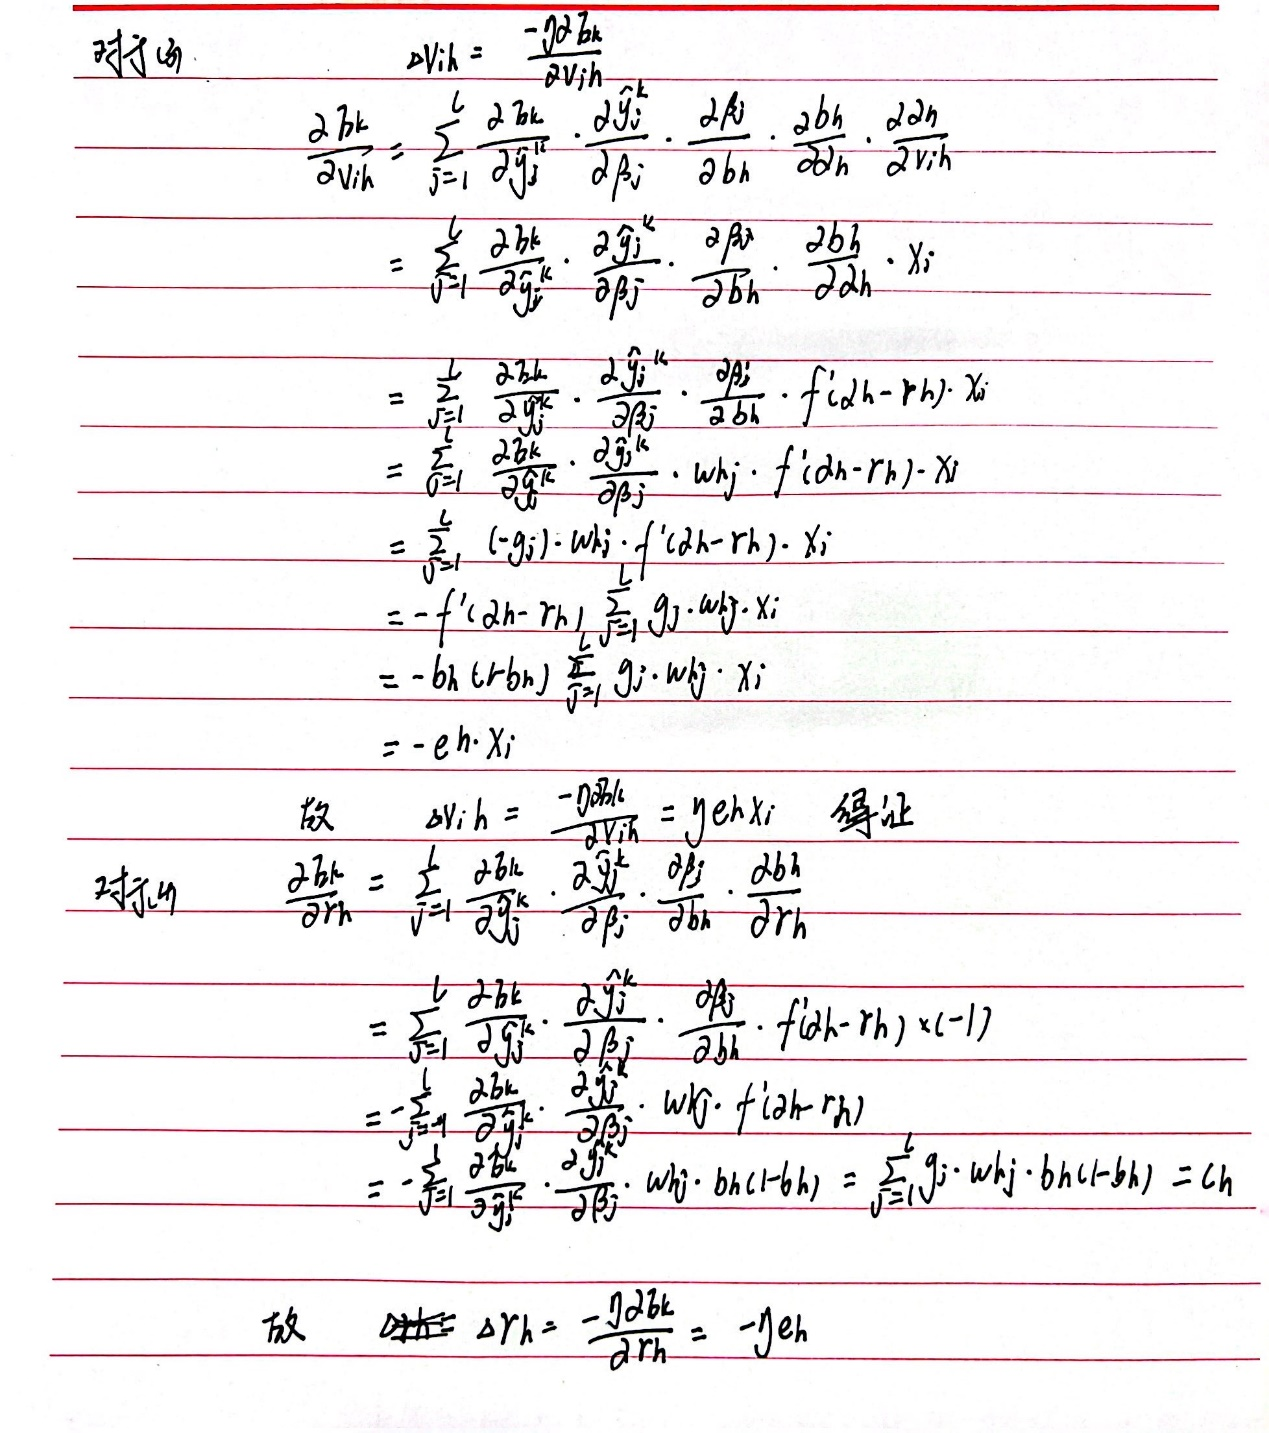 对于(3) △vih = -η∂Ek / ∂vih
∂Ek/∂vih = Σ_{j=1}^{l} ∂Ek/∂ŷj^k · ∂ŷj^k/∂βj · ∂βj/∂bh · ∂bh/∂αh · ∂αh/∂vih
= Σ_{j=1}^{l} ∂Ek/∂ŷj^k · ∂ŷj^k/∂βj · ∂βj/∂bh · ∂bh/∂αh · xi
= Σ_{j=1}^{l} ∂Ek/∂ŷj^k · ∂ŷj^k/∂βj · ∂βj/∂bh · f'(αh-rh) · xi
= Σ_{j=1}^{l} ∂Ek/∂ŷj^k · ∂ŷj^k/∂βj · whj · f'(αh-rh) · xi
= Σ_{j=1}^{l} (-gj) · whj · f'(αh-rh) · xi
= -f'(αh-rh) Σ_{j=1}^{l} gj · whj · xi
= -bh(1-bh) Σ_{j=1}^{l} gj · whj · xi
= -eh · xi
故 △vih = -η∂Ek / ∂vih = ηehxi 得证
对于(4) ∂Ek/∂rh = Σ_{j=1}^{l} ∂Ek/∂ŷj^k · ∂ŷj^k/∂βj · ∂βj/∂bh · ∂bh/∂rh
= Σ_{j=1}^{l} ∂Ek/∂ŷj^k · ∂ŷj^k/∂βj · ∂βj/∂bh · f'(αh-rh) ×(-1)
= -Σ_{j=1}^{l} ∂Ek/∂ŷj^k · ∂ŷj^k/∂βj · whj · f'(αh-rh)
= -Σ_{j=1}^{l} ∂Ek/∂ŷj^k · ∂ŷj^k/∂βj · whj · bh(1-bh) = Σ_{j=1}^{l} gj · whj · bh(1-bh) = eh
故 △rh = -η∂Ek / ∂rh = -ηeh